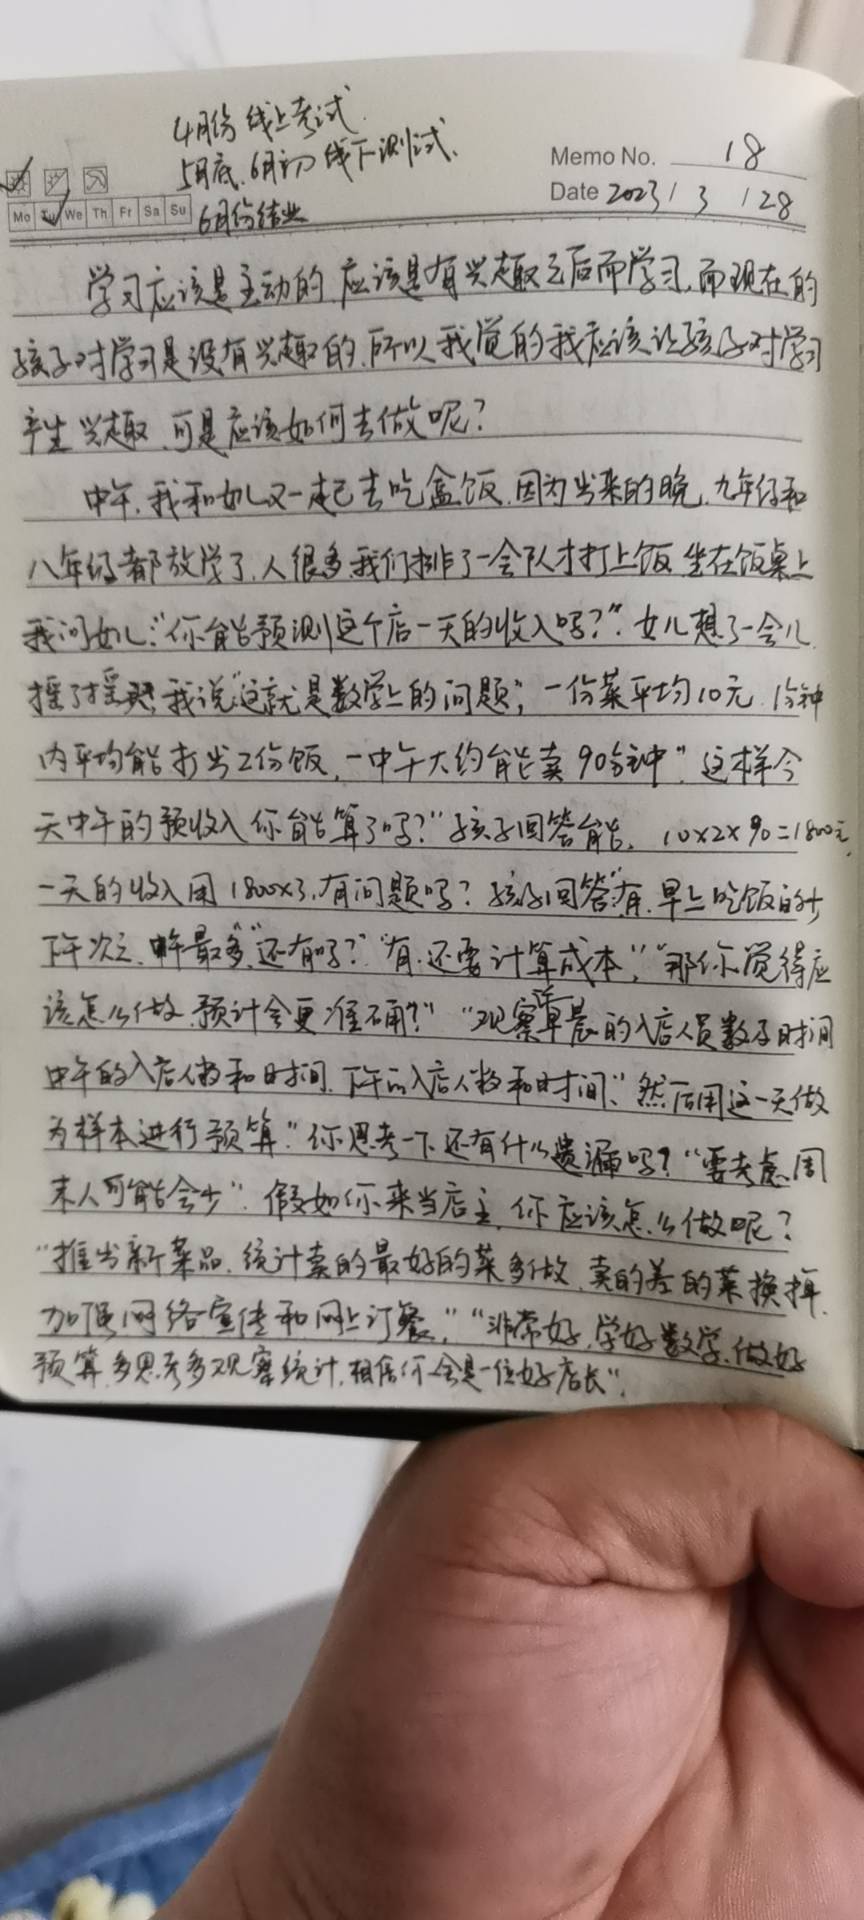 4月份线上考试.
5月底、6月初 线下测试、
6月份结业
Memo No. 18
Date 2023 / 3 / 28
Mo Tu We Th Fr Sa Su
学习应该是主动的,应该是有兴趣之后而学习,而现在的
孩子对学习是没有兴趣的.所以我觉的我应该让孩子对学习
产生兴趣,可是应该如何去做呢?
中午,我和女儿又一起去吃盒饭.因为出来的晚,九年级和
八年级都放学了,人很多,我们排了一会队才打上饭,坐在饭桌上
我问女儿:“你能预测这个店一天的收入吗?”.女儿想了一会儿
摇了摇头,我说“这就是数学上的问题”,一份菜平均10元,1分钟
内平均能打出2份饭,一中午大约能卖90分钟”这样今
天中午的预收入你能算了吗?”孩子回答能, 10×2×90=1800元,
一天的收入用1800×3,有问题吗?孩子回答“有,早上吃饭的少
下午次之、中午最多”“还有吗?”“有,还要计算成本”,“那你觉得应
该怎么做,预计会更准确?”“观察早晨的入店人员数及时间
中午的入店人数和时间、下午的入店人数和时间”,然后用这一天做
为样本进行预算”你思考一下还有什么遗漏吗?“要考虑周
末人可能会少”.假如你来当店主,你应该怎么做呢?
“推出新菜品,统计卖的最好的菜多做,卖的差的菜换掉.
加强网络宣传和网上订餐,”“非常好,学好数学,做好
预算,多思考多观察统计,相信你会是一位好店长”.